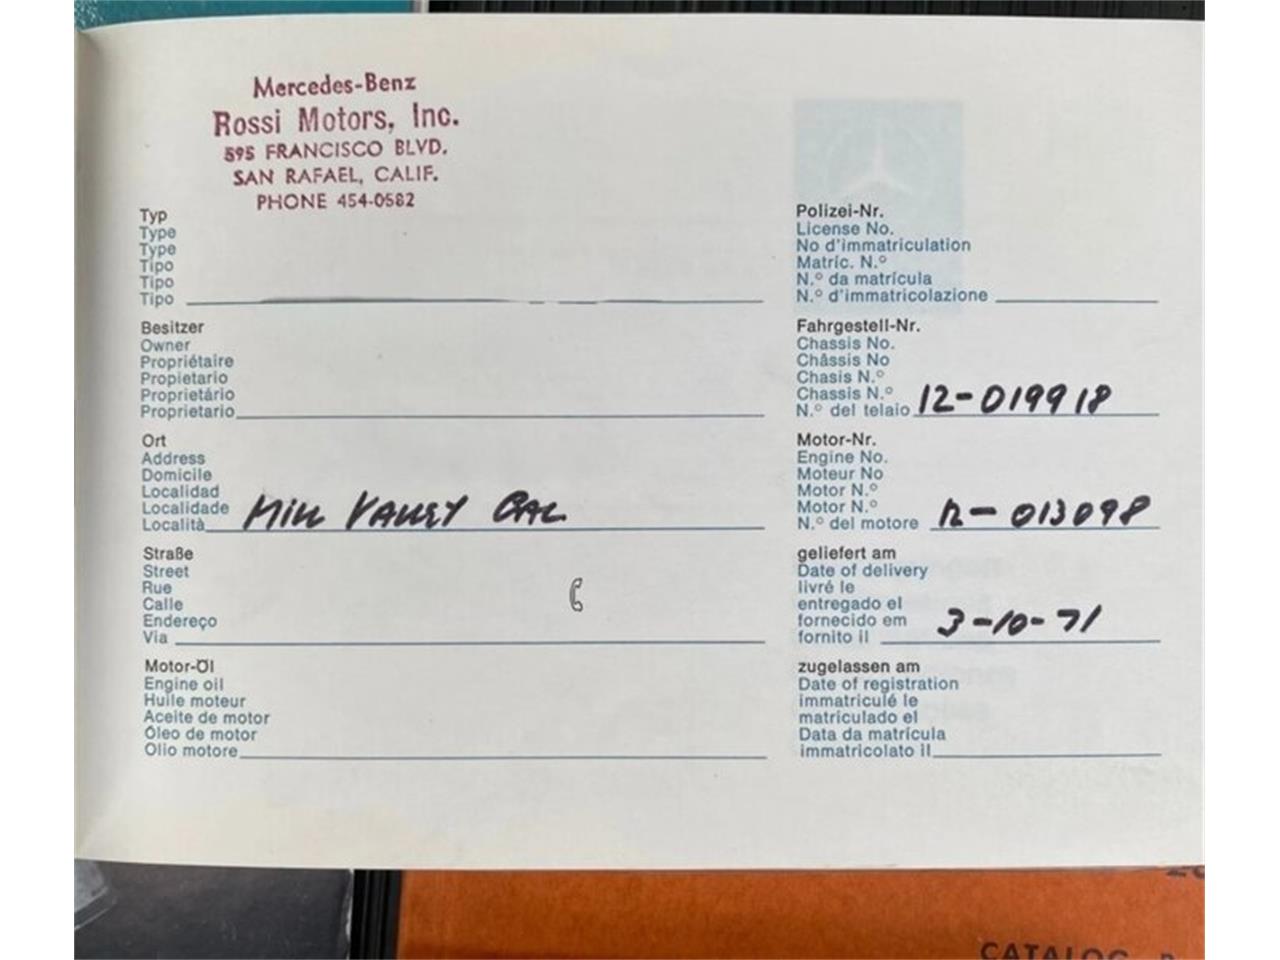 Mercedes-Benz
Rossi Motors, Inc.
595 FRANCISCO BLVD.
SAN RAFAEL, CALIF.
PHONE 454-0582
Typ
Type
Type
Tipo
Tipo
Tipo
Besitzer
Owner
Propriétaire
Propietario
Proprietário
Proprietario
Ort
Address
Domicile
Localidad
Localidade
Località Mill Valley Cal
Straße
Street
Rue
Calle
Endereço
Via
Motor-Öl
Engine oil
Huile moteur
Aceite de motor
Óleo de motor
Olio motore
Polizei-Nr.
License No.
No d'immatriculation
Matríc. N.º
N.º da matrícula
N.º d'immatricolazione
Fahrgestell-Nr.
Chassis No.
Châssis No
Chasis N.º
Chassis N.º
N.º del telaio 12-019918
Motor-Nr.
Engine No.
Moteur No
Motor N.º
Motor N.º
N.º del motore 12-013098
geliefert am
Date of delivery
livré le
entregado el
fornecido em
fornito il 3-10-71
zugelassen am
Date of registration
immatriculé le
matriculado el
Data da matrícula
immatricolato il
CATALOG